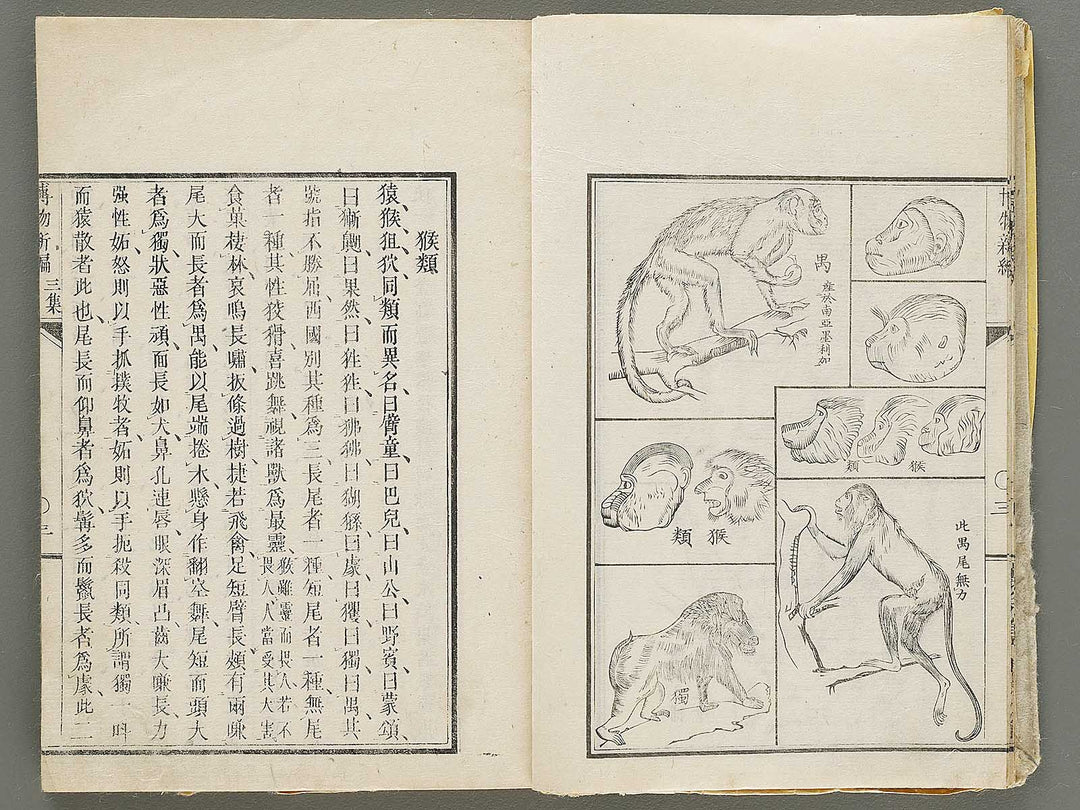 禺
產於南亞墨利加
猴類
猴類
此禺尾無力
獨
猴類
猿猴狙狄同類而異名曰臂童曰巴兒曰山公曰野賓曰蒙頌
曰獑䶉曰果然曰狌狌曰狒狒曰猢猻曰豦曰玃曰獨曰禺其
號指不勝屈西國別其種爲三長尾者一種短尾者一種無尾
者一種其性狡猾喜跳舞視諸獸爲最靈猴雖靈而畏人若不畏人人當受其大害
食菓棲林哀鳴長嘯扳條過樹捷若飛禽足短臂長頰有兩嗛
尾大而長者爲禺能以尾端捲木懸身作翻空舞尾短而頭大
者爲獨狀惡性頑面長如犬鼻孔連唇眼深眉凸齒大嗛長力
强性妬怒則以手抓撲牧者妬則以手扼殺同類所謂獨一呌
而猿散者此也尾長而仰鼻者爲狖髯多而鬣長者爲豦此二
博物新編 三集